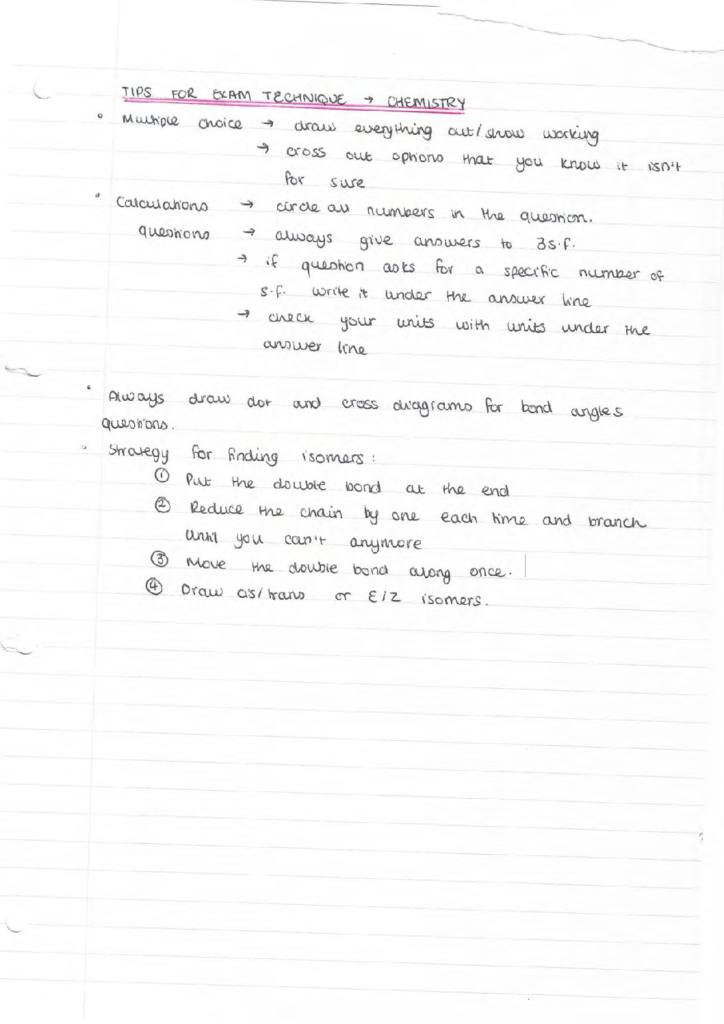 TIPS FOR EXAM TECHNIQUE → CHEMISTRY
• Multiple choice → draw everything out/show working
→ cross out options that you know it isn't
for sure
• Calculations → circle all numbers in the question.
questions → always give answers to 3s.f.
→ if question asks for a specific number of
s.f. write it under the answer line
→ check your units with units under the
answer line
• Always draw dot and cross diagrams for bond angles
questions.
• Strategy for finding isomers:
① Put the double bond at the end
② Reduce the chain by one each time and branch
until you can't anymore
③ Move the double bond along once.
④ Draw cis/trans or E/Z isomers.